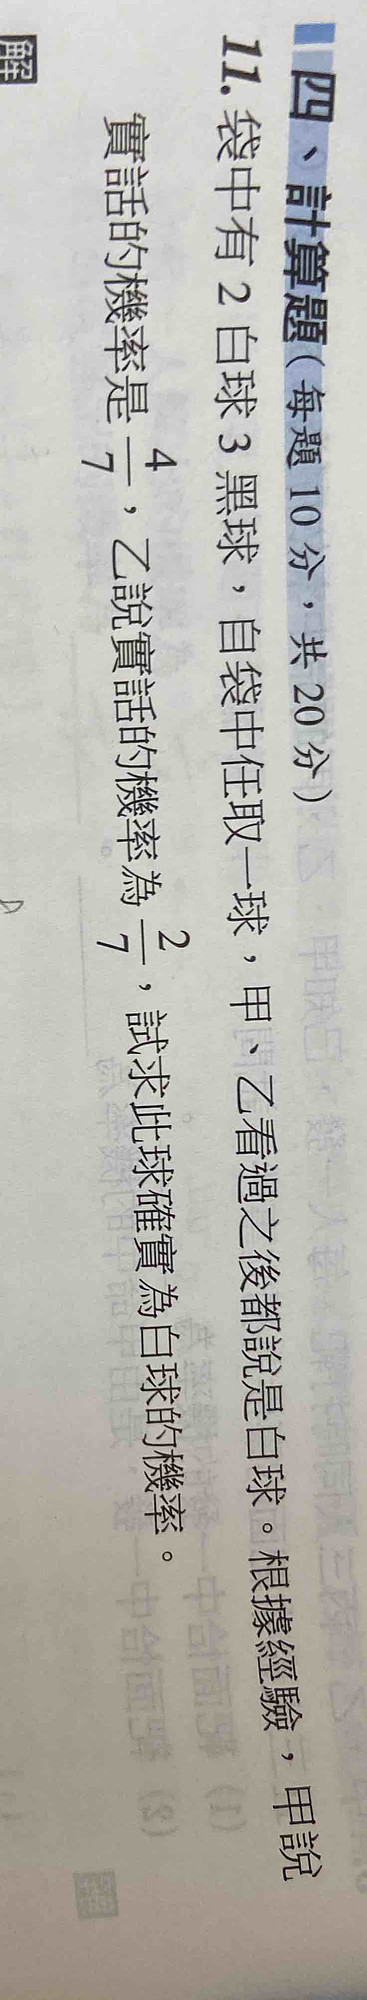 四、計算題(每題 10 分，共 20 分)
11. 袋中有 2 白球 3 黑球，自袋中任取一球，甲、乙看過之後都說是白球。根據經驗，甲說
實話的機率是 4/7，乙說實話的機率為 2/7，試求此球確實為白球的機率。
解